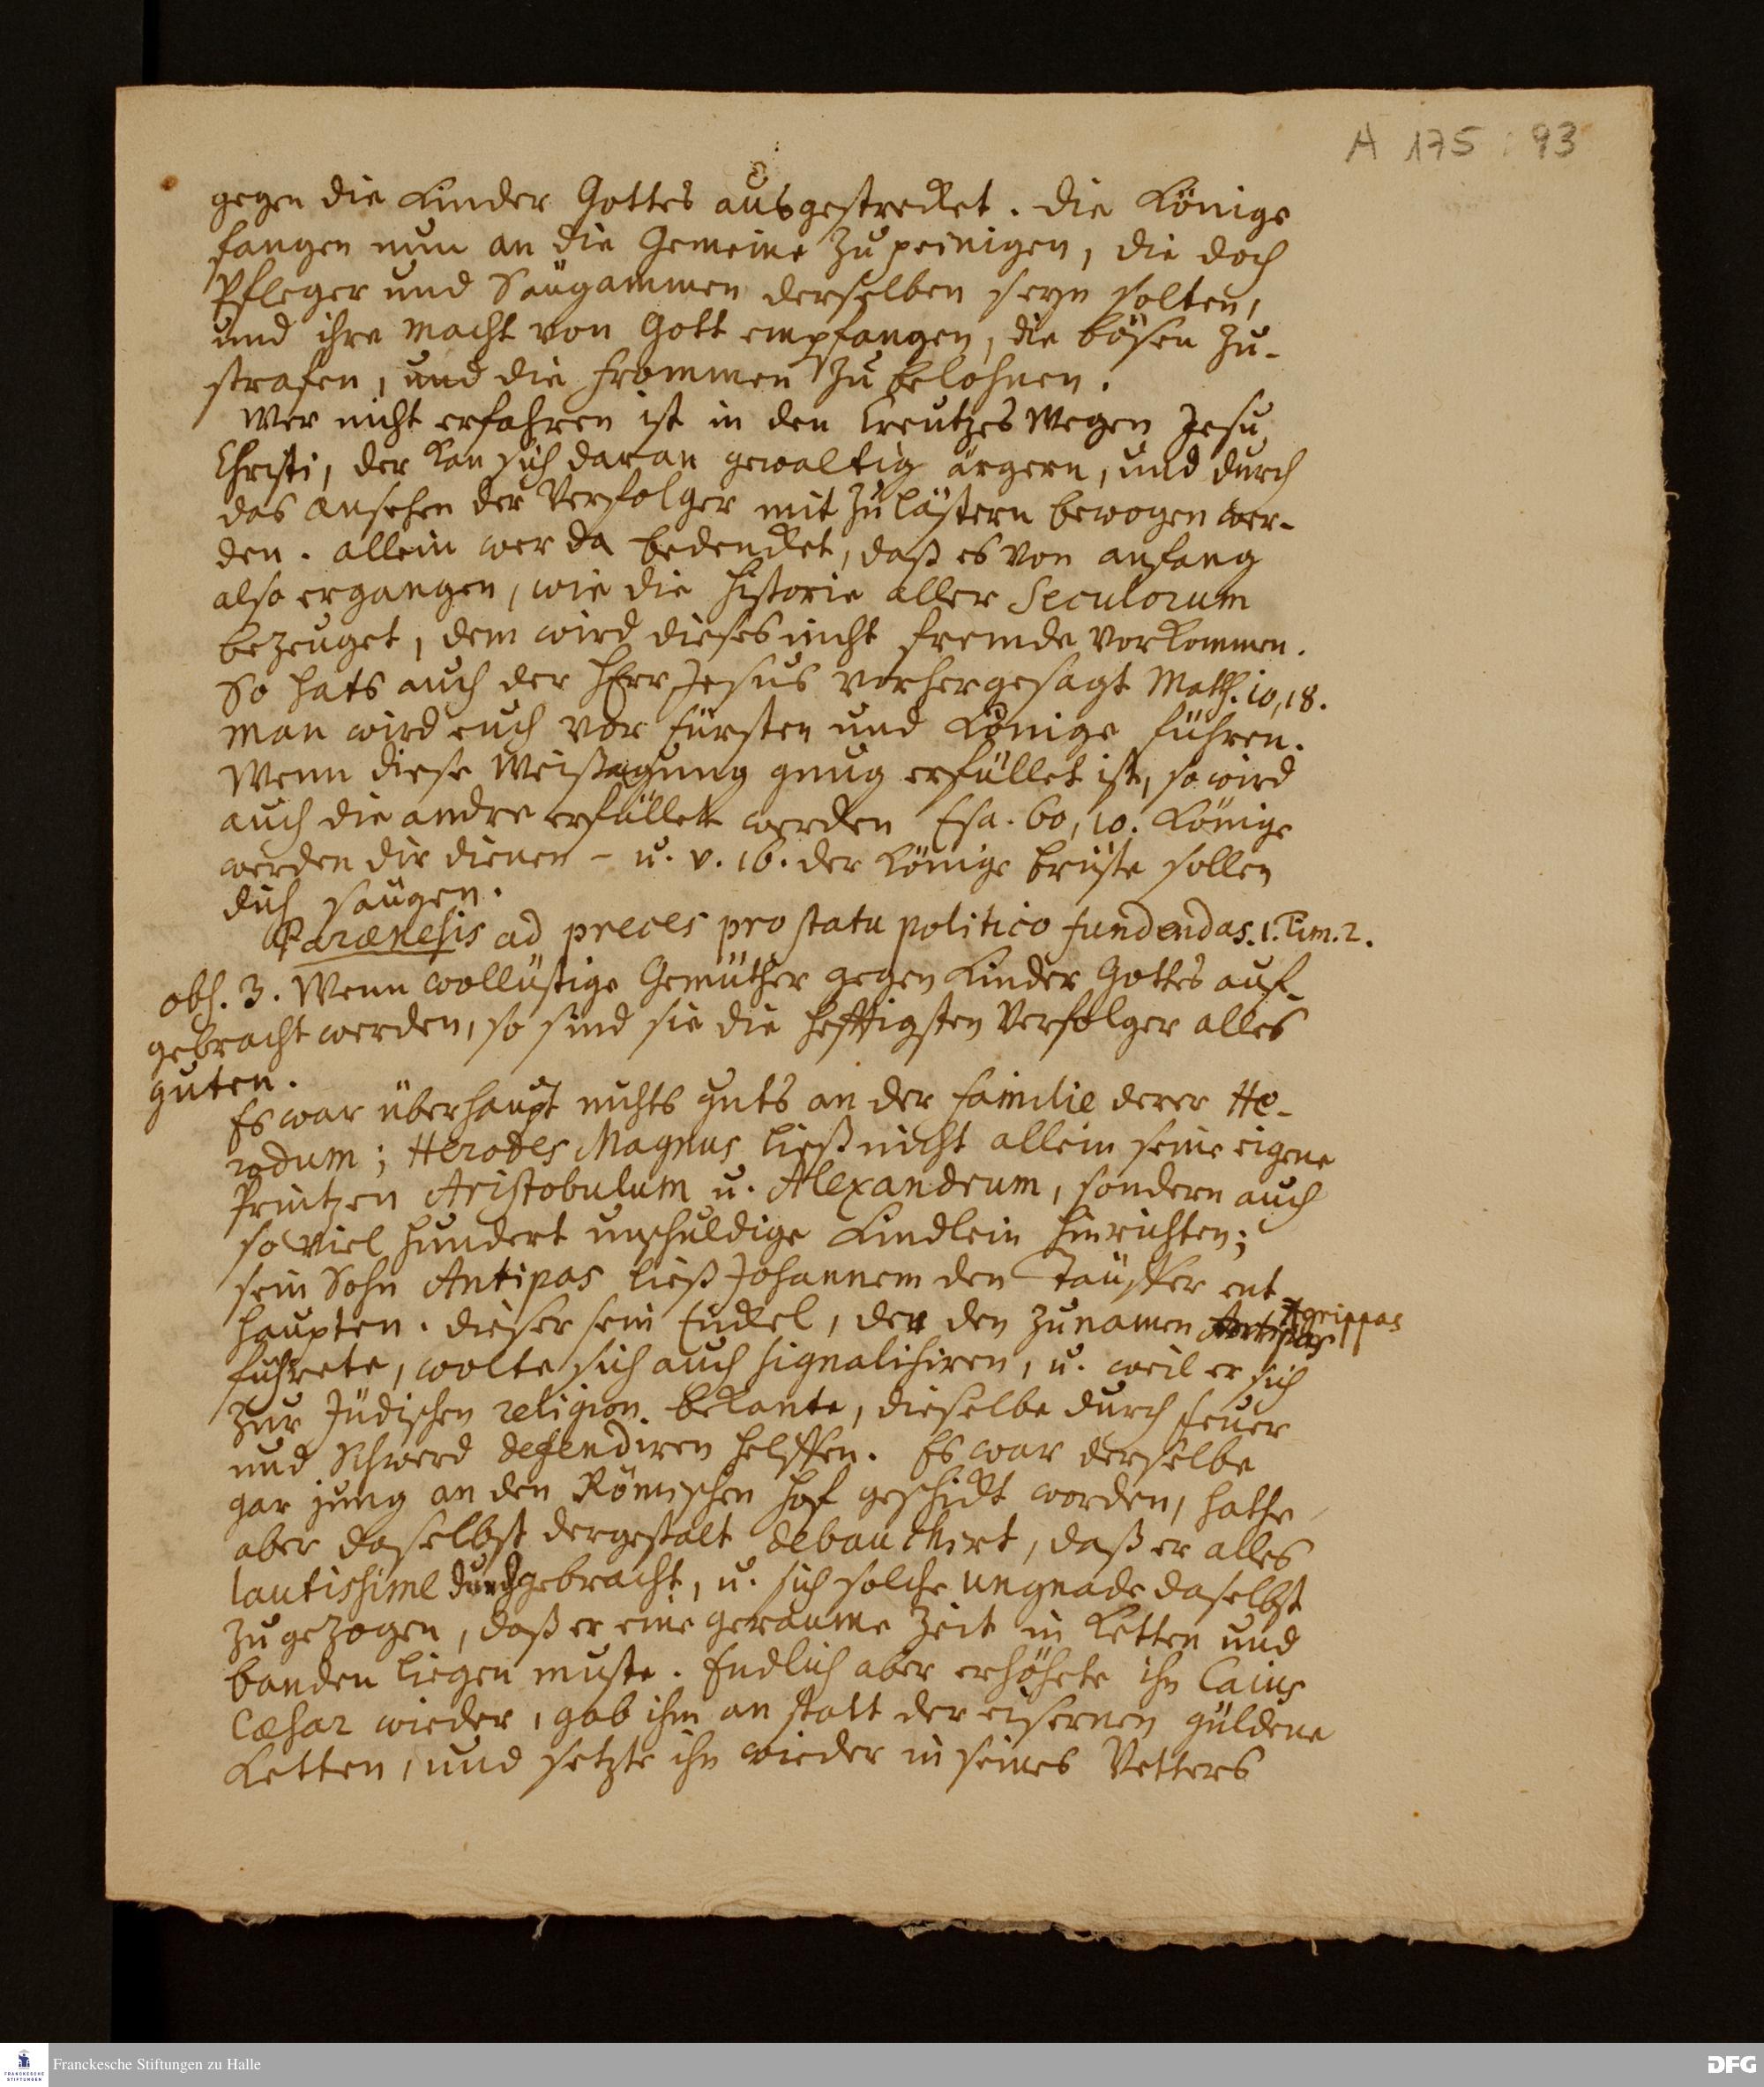 A 175 : 93
gegen die Kinder Gottes ausgestrecket. Die Könige
fangen nun an die Gemeine zu peinigen, die doch
Pfleger und Säugammen derselben seyn solten,
und ihre Macht von Gott empfangen, die bösen zu-
strafen, und die frommen zu belohnen.
Wer nicht erfahren ist in den Creutzes Wegen Jesu
Christi, der kan sich daran gewaltig ärgern, und durch
das ansehen der Verfolger mit zu lästern bewogen wer-
den. allein wer da bedencket, daß es von anfang
also ergangen, wie die Historie aller Seculorum
bezeuget, dem wird dieses nicht fremde vorkommen.
So hats auch der HErr Jesus vorhergesagt Matth. 10, 18.
man wird euch vor Fürsten und Könige führen.
Wenn diese Weißagung gnug erfüllet ist, so wird
auch die andre erfüllet werden Esa. 60, 10. Könige
werden dir dienen - u. v. 16. der Könige brüste sollen
dich säugen.
Parænesis ad preces pro statu politico fundendas. 1. Tim. 2.
obs. 3. Wenn wollüstige Gemüther gegen Kinder Gottes auf-
gebracht werden, so sind sie die hefftigsten Verfolger alles
guten.
Es war überhaupt nichts guts an der familie derer He-
rodum; Herodes Magnus ließ nicht allein seine eigene
Printzen Aristobulum u. Alexandrum, sondern auch
so viel hundert unschuldige Kindlein hinrichten;
sein Sohn Antipas ließ Johannem den Täuffer ent-
haupten. dieser sein Enckel, der den Zunamen Antipas Agrippas
führete, wolte sich auch signalisiren, u. weil er sich
zur Jüdischen religion bekante, dieselbe durch feuer
und Schwerd defendiren helffen. Es war derselbe
gar jung an den Römischen Hof geschickt worden, hatte
aber daselbst dergestalt debauchirt, daß er alles
lautissime durchgebracht, u. sich solche ungnade daselbst
zugezogen, daß er eine geraume Zeit in Ketten und
banden liegen muste. Endlich aber erhöhete ihn Caius
Cæsar wieder, gab ihm an statt der eisernen güldene
Ketten, und setzte ihn wieder in seines Vetters
Franckesche Stiftungen zu Halle
FRANCKESCHE STIFTUNGEN
DFG